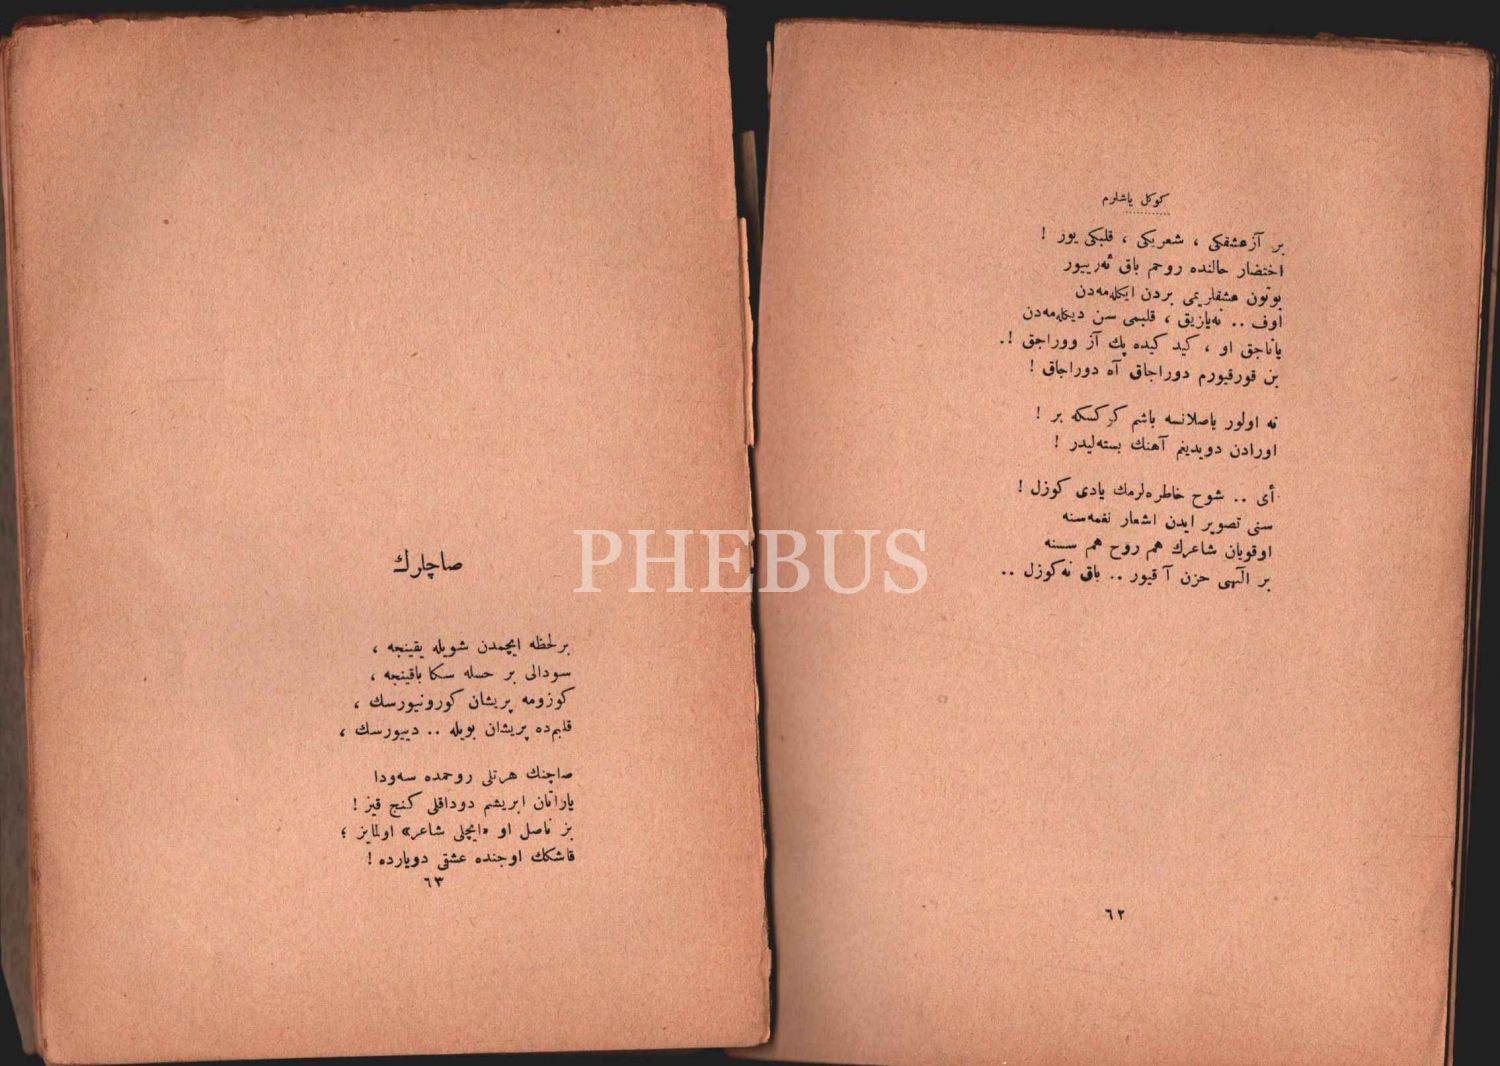 كوكل ياشلرم
بر آز عشقكى ، شعريكى ، قلبكى يوز !
احتضار حالنده روحم باق ئه‌رييور
بوتون عشقلريمى بردن ايكله‌مه‌دن
اوف .. نه‌يازيق ، قلبمى سن ديكله‌مه‌دن
ياناجق او ، كيد كيده پك آز ووراجق !.
بن قورقيورم دوراجاق آه دوراجاق !
نه اولور ياصلانسه باشم كركسكه بر !
اورادن دويديغم آهنك بسته‌ليدر !
أى .. شوح خاطره‌لرمك يادى كوزل !
سنى تصوير ايدن اشعار نغمه‌سنه
اوقويان شاعرك هم روح هم سسنه
بر الهى حزن آقيور .. باق نه‌كوزل ..
٦٢
صاچلرك
برلحظه ايچمدن شويله يقينجه ،
سودالى بر حسله سكا باقينجه ،
كوزومه پريشان كورونيورسك ،
قلبم‌ده پريشان بويله .. دييورسك ،
صاچنك هرتلى روحمده سه‌ودا
ياراتان ابريشم دوداقلى كنج قيز !
بز ناصل او «ايچلى شاعر» اولمايز ؛
قاشكك اوجنده عشقى دويارده !
٦٣
PHEBUS